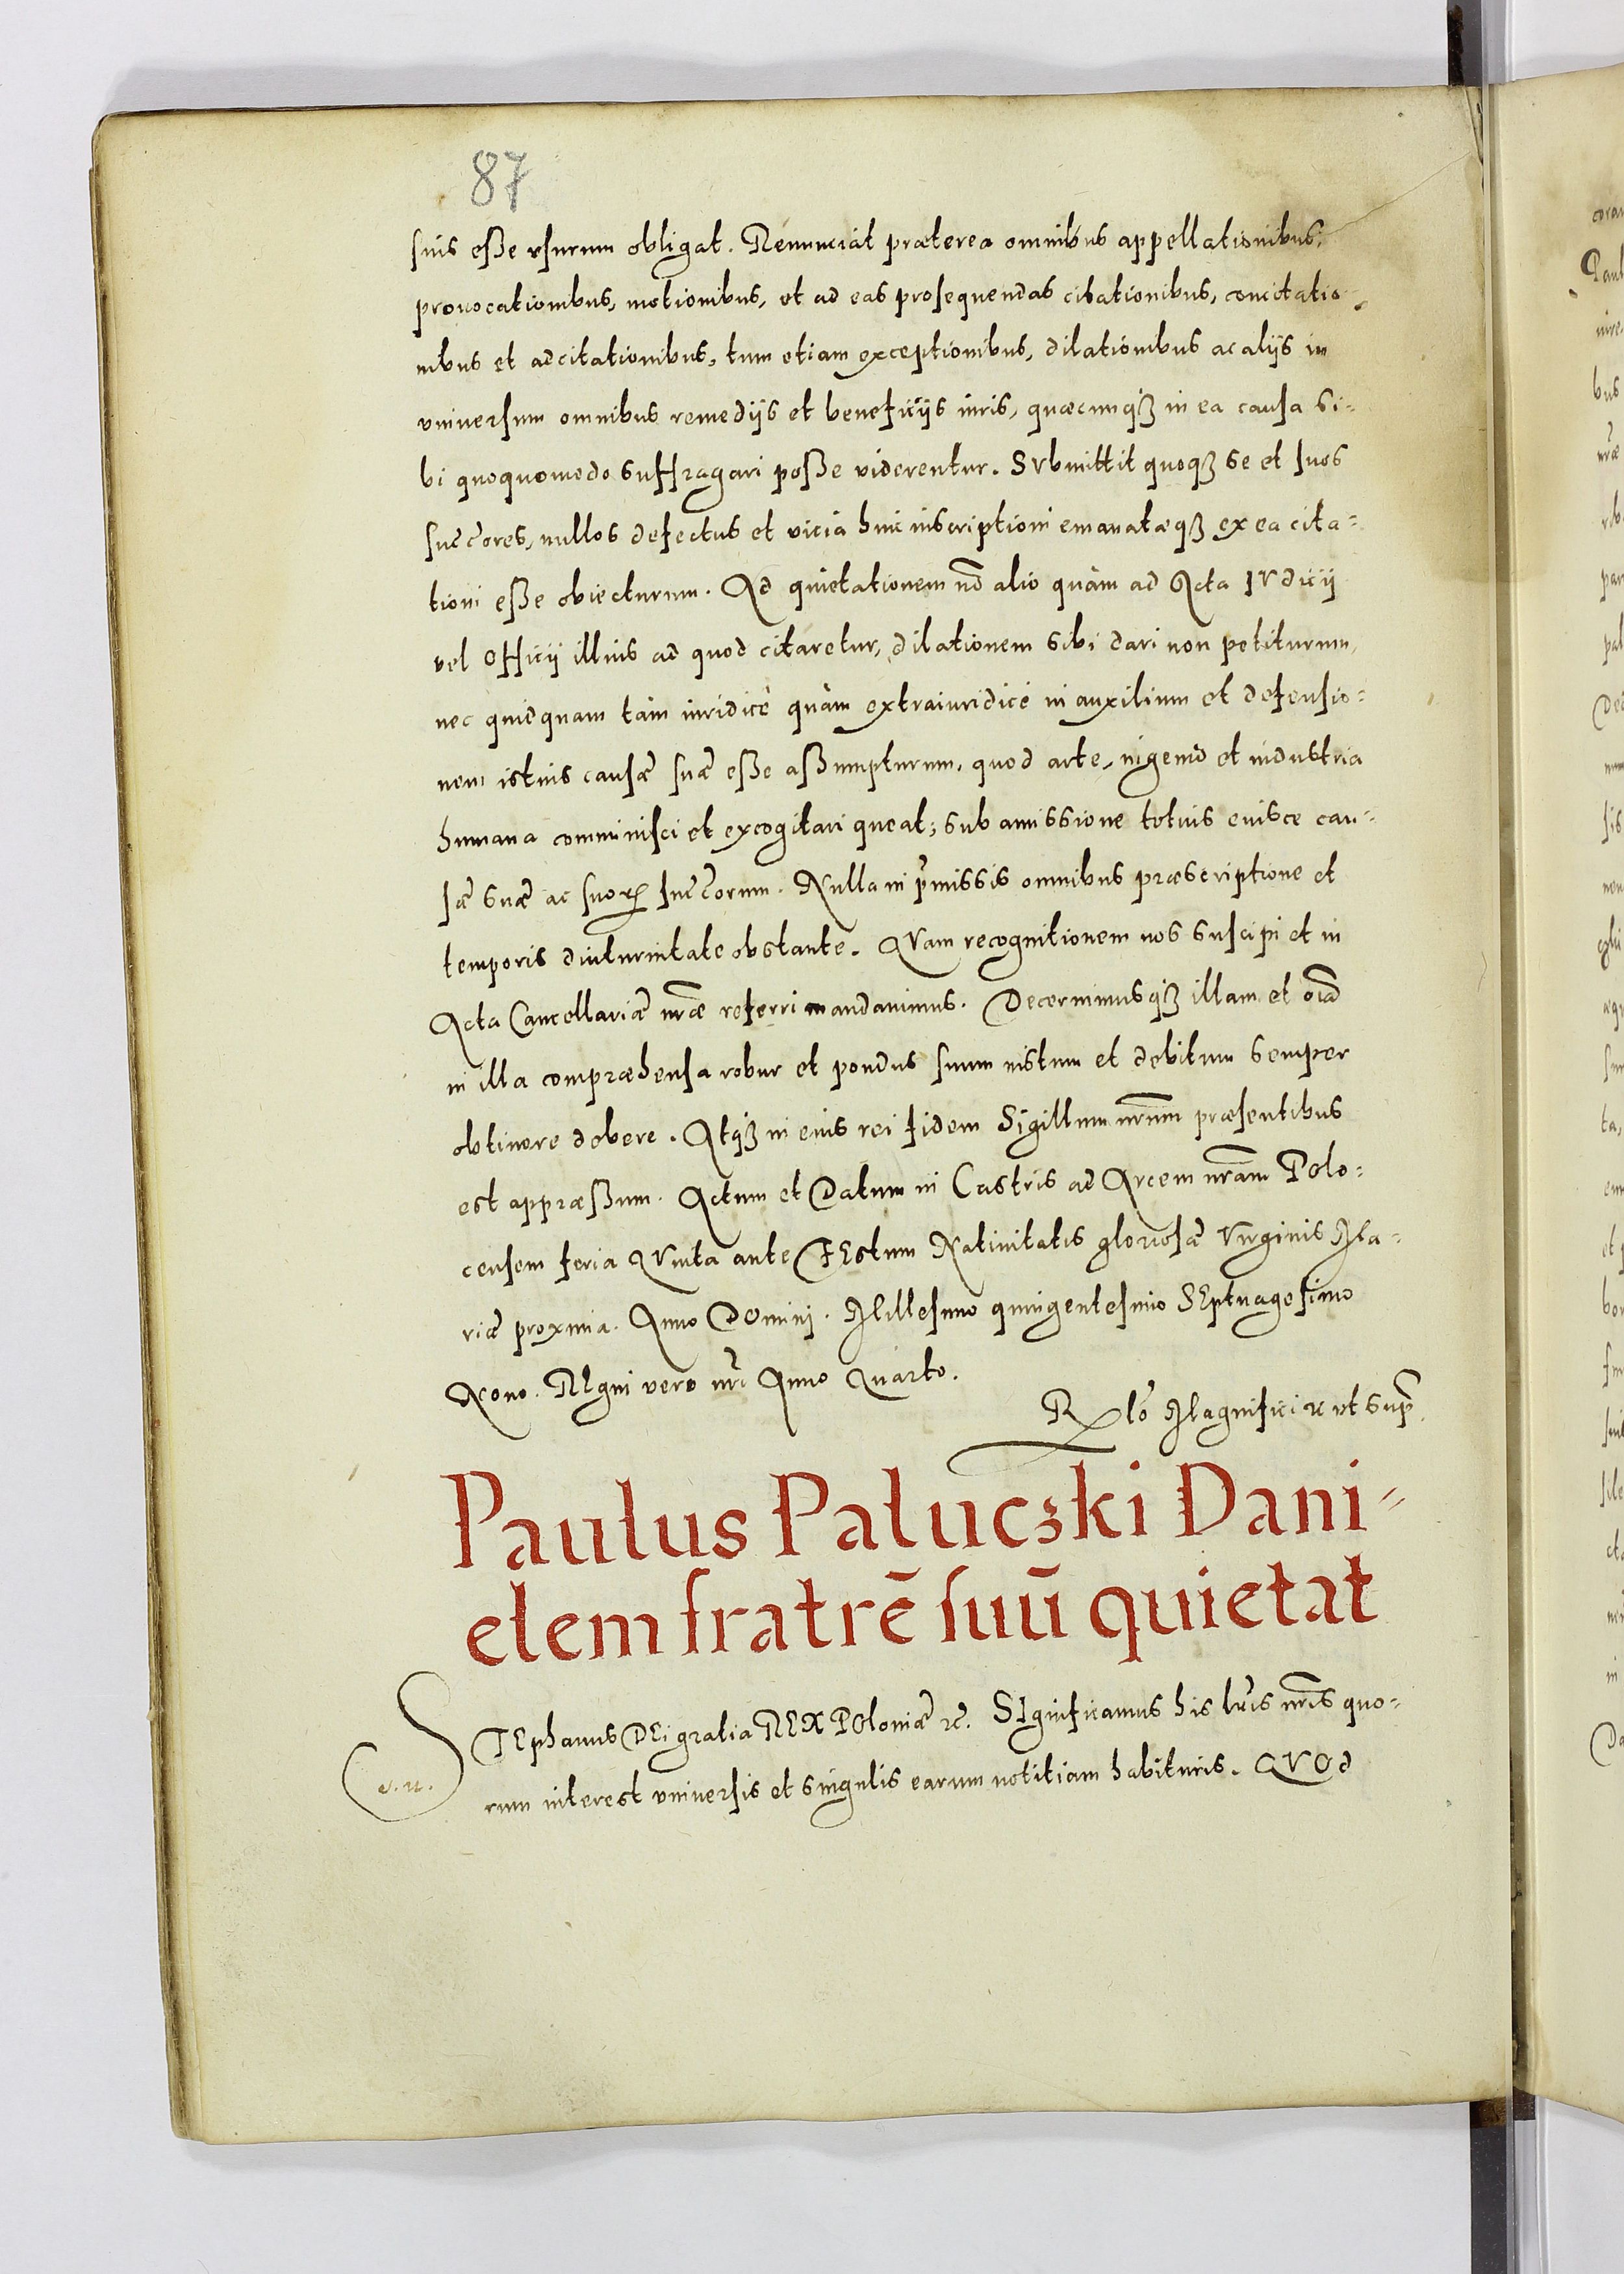 87
suis esse usurum obligat. Renunciat præterea omnibus appellationibus,
provocationibus, motionibus, et ad eas prosequendas citationibus, concitatio-
nibus et adcitationibus, tum etiam exceptionibus, dilationibus ac alijs in
vniversum omnibus remedijs et beneficijs iuris, quæcunqꝫ in ea causa si-
bi quoquomodo suffragari posse viderentur. SVbmittit quoqꝫ se et suos
succ̄ores, nullos defectus et vicia huic inscriptioni emanatæqꝫ ex ea cita-
tioni esse obiecturum. Ad quietationem nō alio quàm ad Acta IVdicij
vel Officij illius ad quod citaretur, dilationem sibi dari non petiturum,
nec quidquam tàm iuridicè quàm extraiuridicè in auxilium et defensio-
nem istius causæ suæ esse assumpturum, quod arte, ingenio et industria
humana comminisci et excogitari queat; sub amissione totius eiusce cau-
sæ suæ ac suoꝝ succ̄orum. Nulla in p̄missis omnibus præscriptione et
temporis diuturnitate obstante. QVam recognitionem nos suscipi et in
Acta Cancellariæ nr̄æ referri mandauimus. Decernimusqꝫ illam et oīa
in illa compræhensa robur et pondus suum iustum et debitum semper
obtinere debere. Atqꝫ in eius rei fidem Sigillum nr̄um præsentibus
est appræssum. Actum et Datum in Castris ad Arcem nr̄am Polo-
censem feria QVinta ante FEstum Natiuitatis gloriosæ Virginis Ma-
riæ proxima. Anno DOmini. Millesimo quingentesimo SEptuagesimo
Nono. REgni vero nr̄i Anno Quarto.
Rel̄o Magnifici ꝛc ut sup̄
Paulus Paluczki Dani-
elem fratrē suū quietat
STEphanus DEi gratia REX POloniæ ꝛc̄. SIgnificamus his lr̄is nr̄is quo-
rum interest vniversis et singulis earum notitiam habituris. QVOd